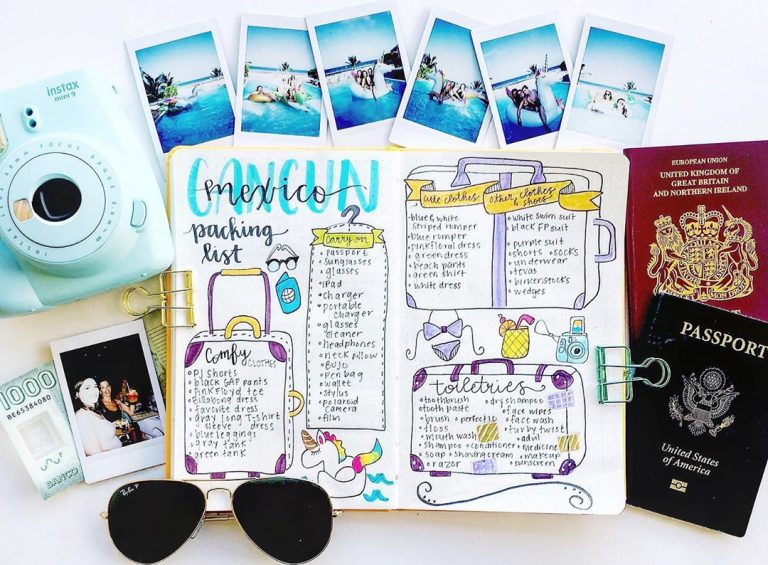 instax
mini 9
CANCUN
mexico
packing
list
CARRY ON
PASSPORT
SUNGLASSES
glasses
iPad
charger
portable
charger
glasses
cleaner
headphones
neck pillow
BUJO
pen bag
wallet
stylus
polaroid
camera
film
Comfy
CLOTHES
PJ shorts
black GAP pants
PINK FLOYD tee
Billabong dress
favorite dress
gray long T-shirt
sleeve dress
blue leggings
gray tank
green tank
cute clothes
blue & white
striped romper
blue romper
pink floral dress
green dress
beach pants
green shirt
white dress
other clothes
& shoes
white swim suit
black FP suit
purple suit
shorts socks
underwear
tevas
birkenstocks
wedges
toiletries
toothbrush
tooth paste
brush perfect 10
floss
mouth wash
shampoo + conditioner
soap shaving cream
razor
dry shampoo
face wipes
face wash
turby twist
advil
medicine
makeup
sunscreen
EUROPEAN UNION
UNITED KINGDOM OF
GREAT BRITAIN
AND NORTHERN IRELAND
PASSPORT
United States
of America
1000
BE65384080
BANCO
Ray-Ban P